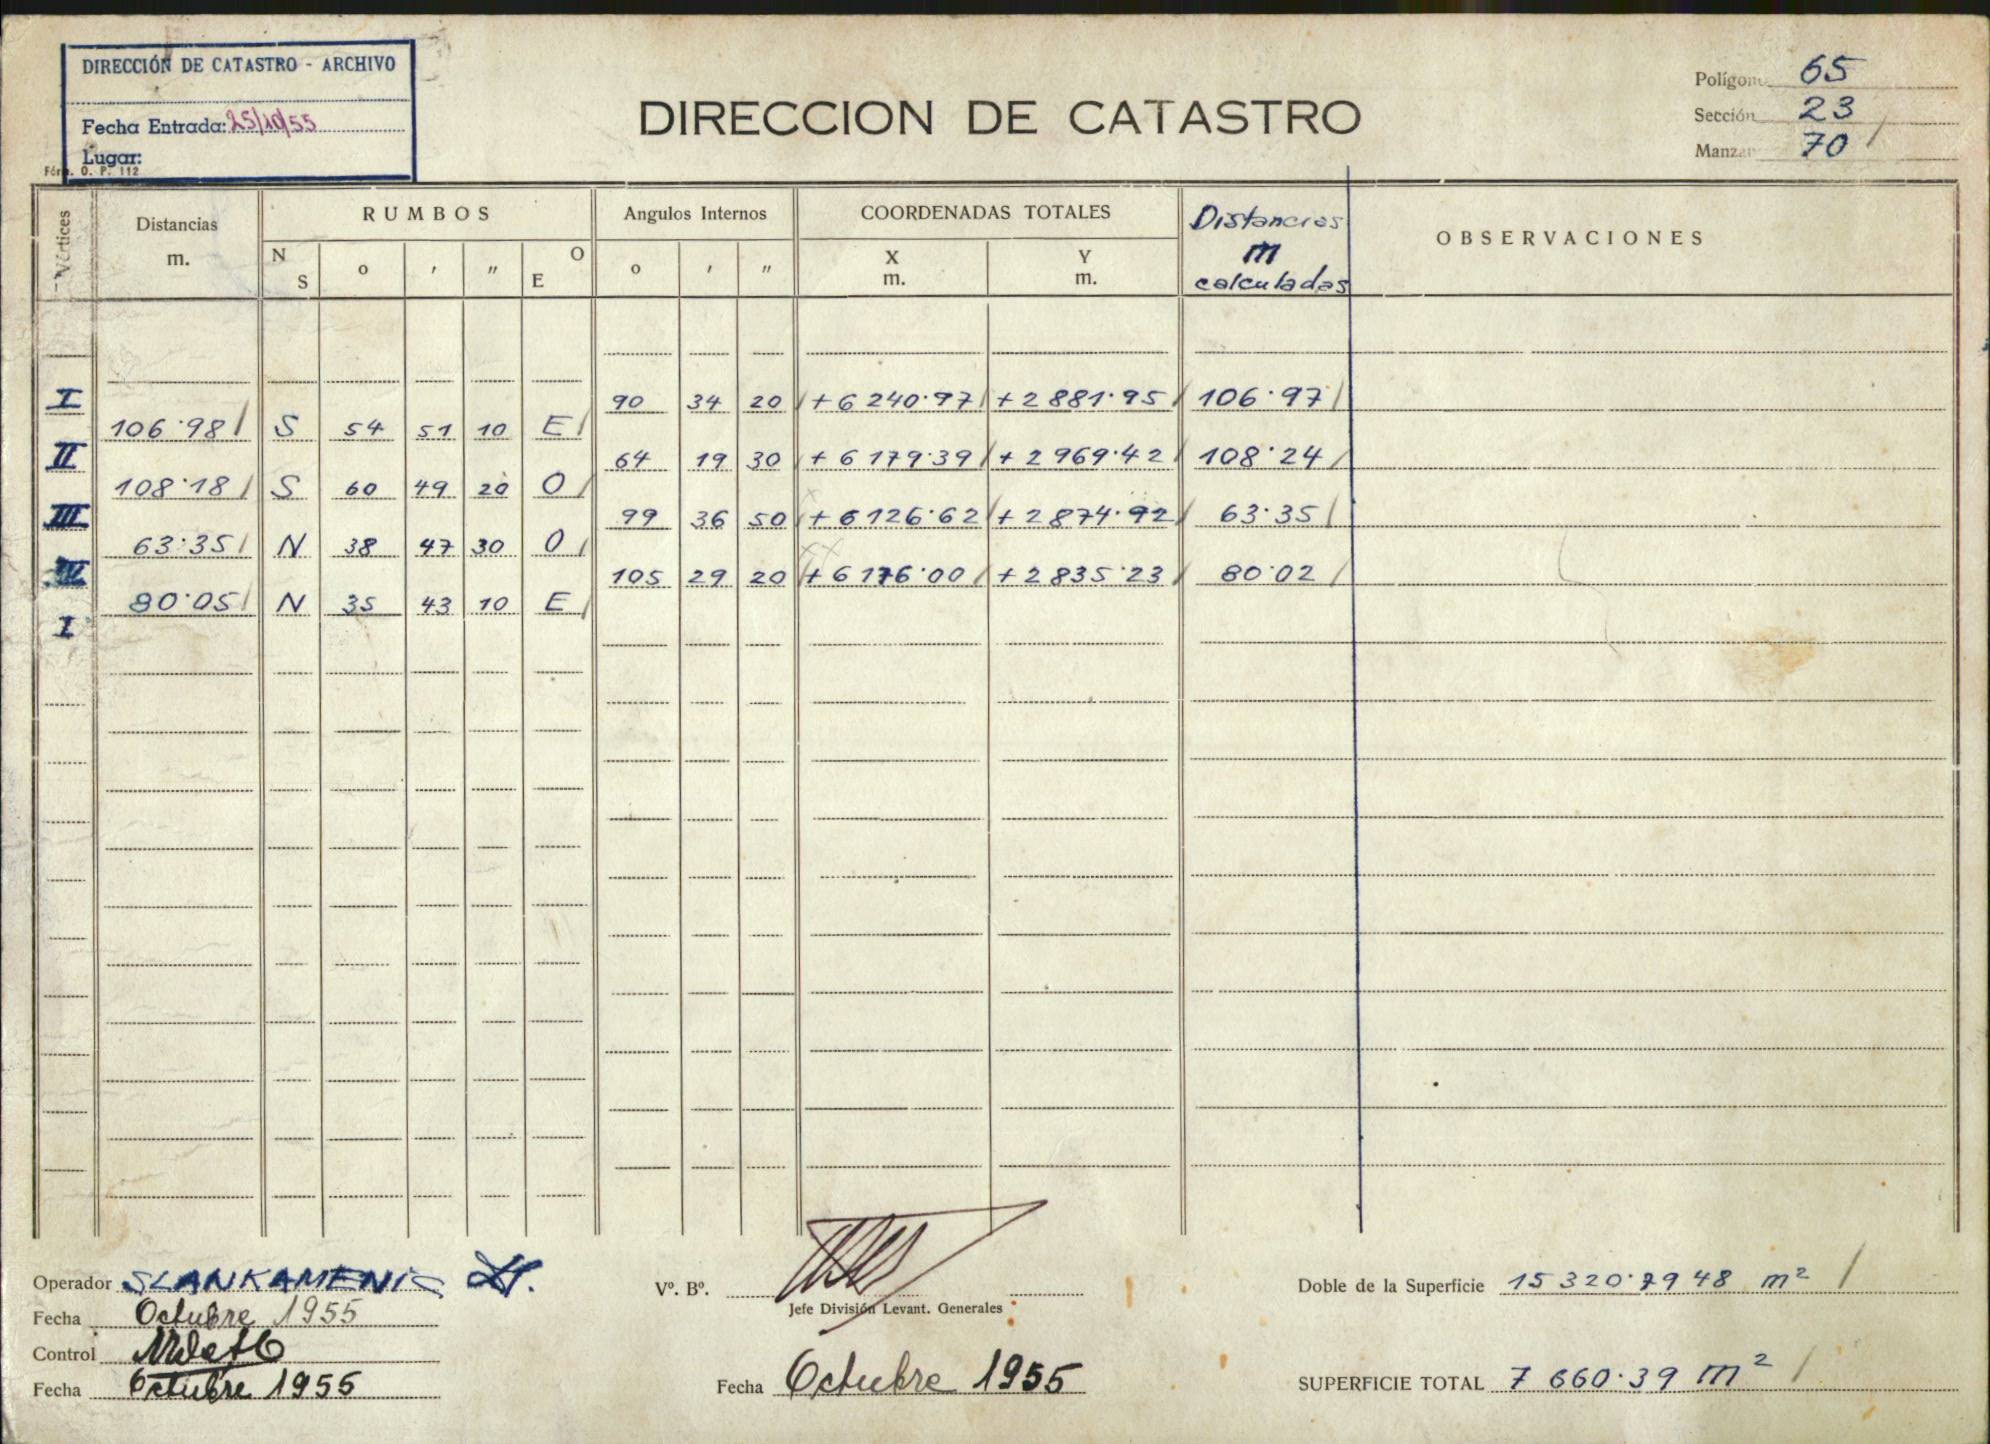 DIRECCIÓN DE CATASTRO - ARCHIVO
Fecha Entrada: 25/10/55
Lugar:
Fórm. O. P. 112
DIRECCION DE CATASTRO
Polígono 65
Sección 23
Manzana 70
Vértices Distancias m. RUMBOS Angulos Internos COORDENADAS TOTALES Distancias m calculadas OBSERVACIONES
N S o ' " O E o ' " X m. Y m.
I 90 34 20 +6 240·97 +2 881·95 106·97
106·98 S 54 51 10 E
II 64 19 30 +6 179·39 +2 969·42 108·24
108·18 S 60 49 20 O
III 99 36 50 +6 126·62 +2 874·92 63·35
63·35 N 38 47 30 O
IV 105 29 20 +6 176·00 +2 835·23 80·02
80·05 N 35 43 10 E
I
Operador SLANKAMENIC
Fecha Octubre 1955
Control
Fecha Octubre 1955
Vº. Bº.
Jefe División Levant. Generales
Fecha Octubre 1955
Doble de la Superficie 15 320·7948 m²
SUPERFICIE TOTAL 7 660·39 m²